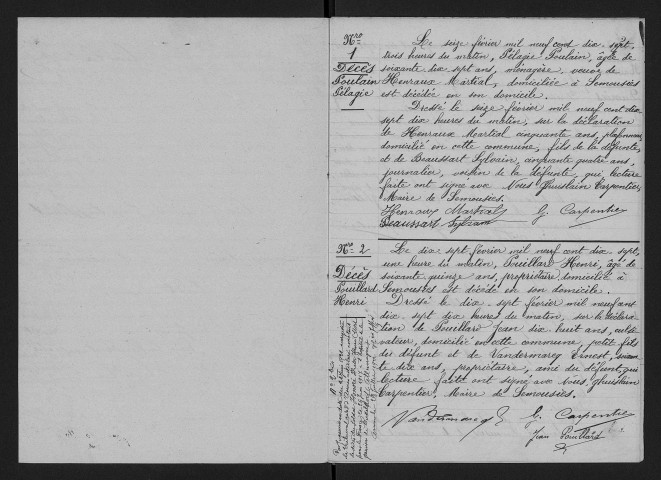 Nro
1
Décès
Poulain
Pélagie
Le seize février mil neuf cent dix sept,
trois heures du matin, Pélagie Poulain, âgée de
soixante dix sept ans, ménagère, veuve de
Henraux Martial, domiciliée à Semousies
est décédée en son domicile.
Dressé le seize février mil neuf cent dix
sept dix heures du matin, sur la déclaration
de Henraux Martial cinquante ans, plafonneur
domicilié en cette commune, fils de la défunte,
et de Beaussart Sylvain, cinquante quatre ans,
journalier, voisin de la défunte, qui lecture
faite ont signé avec Nous Ghuislain Carpentier,
Maire de Semousies.
Henraux Martial G. Carpentier
Beaussart Sylvain
Nro 2
Décès
Pouillard
Henri
Le dix sept février mil neuf cent dix sept,
une heure du matin, Pouillard Henri, âgé de
soixante quinze ans, propriétaire domicilié à
Semousies est décédé en son domicile.
Dressé le dix sept février mil neuf cent
dix sept dix heures du matin, sur la déclara
tion de Pouillard Jean dix huit ans, culti
vateur, domicilié en cette commune, petit fils
du défunt et de Vandermarcq Ernest, soixan
te dix ans, propriétaire, ami du défunt, qui
lecture faite ont signé avec Nous, Ghuislain
Carpentier, Maire de Semousies.
Vandermarcq E G. Carpentier
Jean Pouillard